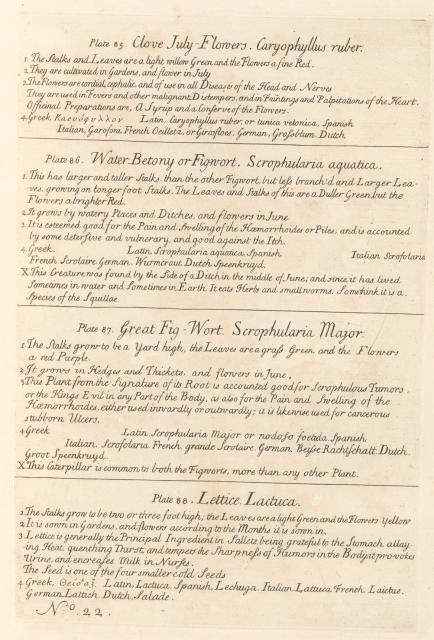 Plate 85. Clove July-Flowers. Caryophyllus ruber.
1. The Stalks and Leaves are a light willow Green and the Flowers a fine Red.
2. They are cultivated in Gardens, and flower in July
3. The Flowers are cordial, cephalic, and of use in all Diseases of the Head and Nerves
They are used in Fevers and other malignant Distempers, and in Faintings and Palpitations of the Heart.
Officinal Preparations are, A Syrup and a Conserve of the Flowers.
4. Greek Latin, Caryophyllus ruber, or tunica vetonica, Spanish
Italian, Garofoni, French Oeilletz, or Girofloes, German, Graſsblum, Dutch
Plate 86. Water-Betony or Figwort. Scrophularia aquatica.
1. This has larger and taller Stalks, than the other Figwort, but leſs branch'd and Larger Lea-
ves, growing on longer foot Stalks. The Leaves and Stalks of this are a Duller Green, but the
Flowers a brighter Red.
2. It grows by watery Places and Ditches, and flowers in June
3. It is esteemed good for the Pain and Swelling of the Hæmorrhoides or Piles, and is accounted
by some deterſive and vulnerary, and good against the Itch.
4. Greek. Latin, Scrophularia aquatica, Spanish Italian Scrofolaria
French Scrolaire German. Wurmcraut Dutch Speenkruyd.
X This Creature was found by the Side of a Ditch in the middle of June, and since it has lived
Sometimes in water and Sometimes in Earth. It eats Herbs and small worms. Some think it is a
Species of the Squillae.
Plate 87. Great Fig-Wort. Scrophularia Major.
1. The Stalks grow to be a Yard high, the Leaves are a graſs Green and the Flowers
a red Purple.
2. It grows in Hedges and Thickets, and flowers in June,
3 This Plant from the Signature of its Root is accounted good for Scrophulous Tumors
or the Kings Evil in any Part of the Body, as also for the Pain and Swelling of the
Hæmorrhoides, either used inwardly or outwardly; it is likewise used for cancerous
stubborn Ulcers.
4 Greek Latin Scrophularia Major or nodoſo foetida, Spanish
Italian, Scrofolaria. French, grande Scrolaire. German, Dutch
Groot Speenkruyd.
X This Caterpillar is common to both the Figworts, more than any other Plant.
Plate 88. Lettice. Lactuca.
1 The Stalks grow to be two or three foot high, the Leaves are a light Green and the Flowers Yellow
2. It is sown in Gardens, and flowers according to the Months it is sown in.
3. Lettice is generally the Principal Ingredient in Sallets, being grateful to the Stomach, allay-
ing Heat, quenching Thurst, and tempers the Sharpneſs of Humors in the Body, it provokes
Urine, and encreases Milk in Nurses.
The Seed is one of the four smaller cold Seeds
4 Greek, Latin, Lactuca, Spanish, Lechuga. Italian. Lattuca. French. Laictue.
German, Lattich. Dutch, Salade.
N.o 22.